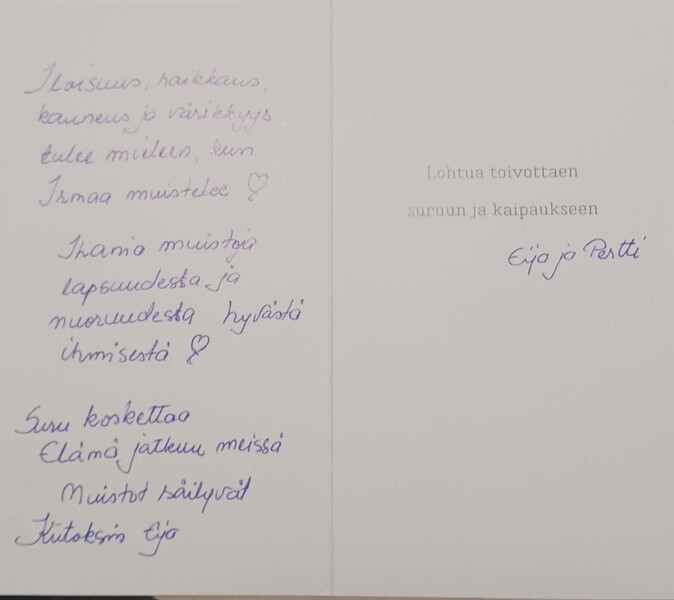 Iloisuus, raikkaus,
kauneus ja värikkyys
tulee mieleen, kun
Irmaa muistelee ♡
Ihania muistoja
lapsuudesta ja
nuoruudesta hyvästä
ihmisestä ♡
Suru koskettaa
Elämä jatkuu meissä
Muistot säilyvät
Eija
Lohtua toivottaen
suruun ja kaipaukseen
Eija ja Pertti